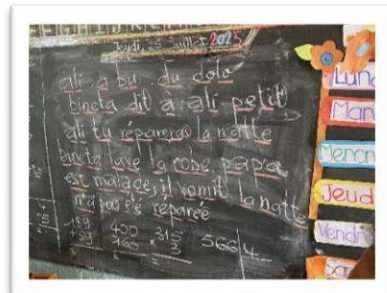 Jeudi 25 Juillet 2023
ali a bu du dolo
bineta dit à ali petit
ali tu répareras la natte
bineta lave la robe papa
est malade, il vomit la natte
n'a pas été réparée
400
315
× 3
566 4
Lun
Mar
Mercr
Jeud
Vendre
Sam